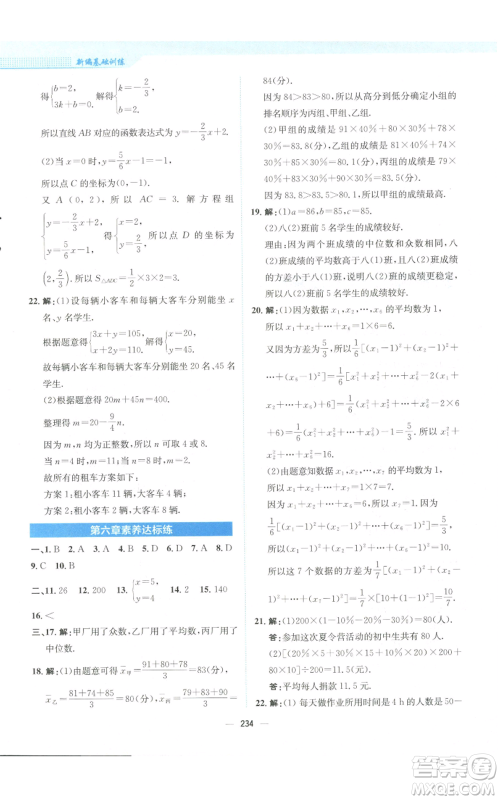 新编基础训练
得{b=2, 3k+b=0.解得{k=-2/3, b=2.
所以直线 AB 对应的函数表达式为 y=-2/3x+2.
(2)当 x=0 时,y=5/6x-1=-1.
所以点 C 的坐标为(0,-1).
又 A(0,2),所以 AC=3.解方程组
{y=-2/3x+2, y=5/6x-1,得{x=2, y=2/3.所以点 D 的坐标为
(2,2/3).所以 S△ADC=1/2×3×2=3.
22.解:(1)设每辆小客车和每辆大客车分别能坐 x
名、y 名学生.
根据题意,得{3x+y=105, x+2y=110.解得{x=20, y=45.
故每辆小客车和每辆大客车分别能坐 20 名、45 名
学生.
(2)根据题意得 20m+45n=400.
整理得 m=20-9/4n.
因为 m,n 均为正整数,所以 n 为 4 或 8.
故所有租车方案为:
方案 1:租小客车 11 辆,大客车 4 辆;
方案 2:租小客车 2 辆,大客车 8 辆.
第六章素养达标练
一、1.B 2.A 3.D 4.A 5.B 6.A 7.B 8.D
9.C 10.B
二、11.26 12.200 13.{x=5, y=4 15.140
16.<
三、17.解:甲厂用了众数,乙厂用了平均数,丙厂用了中
位数.
18.解:(1)由题意可得 x甲=(91+80+78)/3=83(分),
x乙=(81+74+85)/3=80(分),x丙=(79+83+90)/3=
84(分).
因为 84>83>80,所以从高分到低分确定小组的
排名顺序为丙、甲、乙.
(2)甲组的成绩是 91×40%+80×30%+78×
30%=83.8(分),乙组的成绩是 81×40%+74×
30%+85×30%=80.1(分),丙组的成绩是 79×
40%+83×30%+90×30%=83.5(分).
因为 83.8>83.5>80.1,所以甲组的成绩最高.
19.解:(1)a=86,b=85,c=85.
(2)八(2)班前 5 名学生的成绩较好.
理由:因为两个班成绩的中位数和众数都相同,八
(2)班成绩的平均数高于八(1)班,同时八(2)班成
绩的方差小于八(1)班,说明八(2)班成绩更稳定,
所以八(2)班前 5 名学生的成绩较好.
20.解:(1)因为数据 x1,x2,…,x6 的平均数为 1,
所以 x1+x2+…+x6=1×6=6.
又因为方差为 5/3,所以 1/6[(x1-1)²+(x2-1)²
+…+(x6-1)²]=1/6[x1²+x2²+…+x6²-2(x1
+x2+…+x6)+6]=1/6(x1²+x2²+…+x6²-2×6
+6)=1/6(x1²+x2²+…+x6²)-1=5/3.所以 x1²+x2²
+…+x6²=16.
(2)由题意知数据 x1,x2,…,x7 的平均数为 1,所
以 x1+x2+…+x7=1×7=7.
因为 x1+x2+…+x6=6,所以 x7=1.因为
1/6[(x1-1)²+(x2-1)²+…+(x6-1)²]=5/3,
所以(x1-1)²+(x2-1)²+…+(x6-1)²=10.
所以这 7 个数据的方差为 1/7[(x1-1)²+(x2-
1)²+…+(x7-1)²]=1/7[10+(1-1)²]=10/7.
21.解:(1)8÷10%=80(人).
答:参加本次夏令营活动的初中生共有 80 人.
(2)
80×20%]=11.5(元).
答:平均每人捐款 11.5 元.
22.解:(1)每天做作业所用时间是 4 h 的人数是 50-
234
答案圈
MXQE.COM